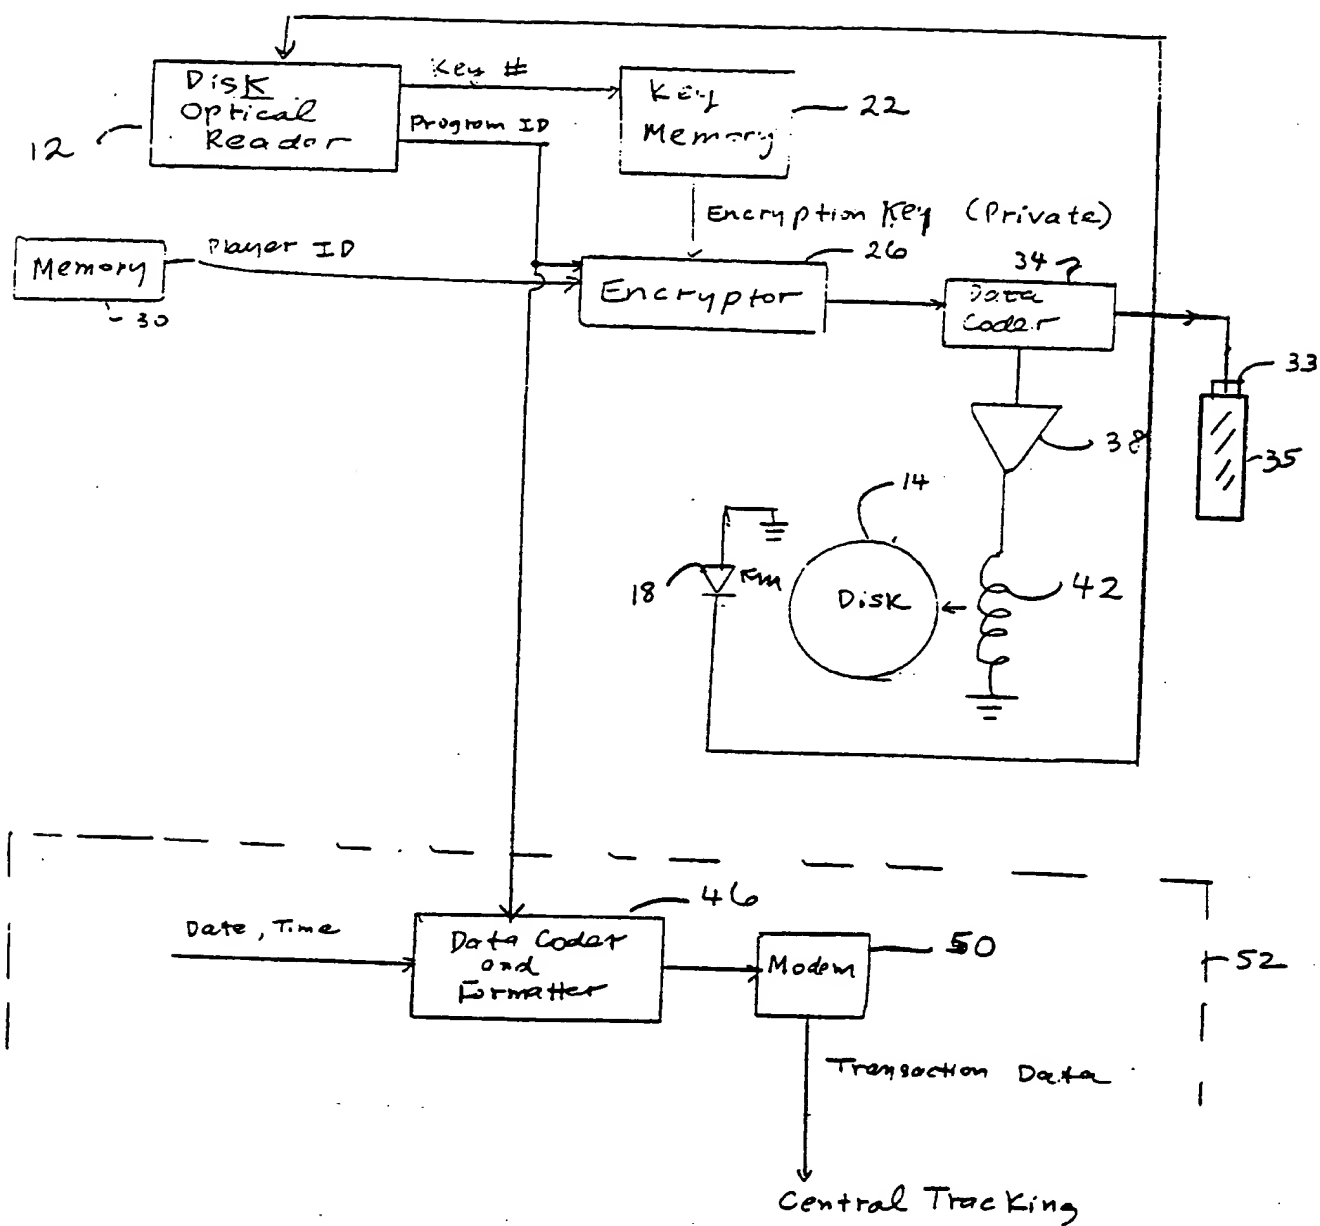 Disk
Optical
Reader
12
Key #
Program ID
Key
Memory
22
Encryption Key (Private)
Memory
30
Player ID
Encryptor
26
34
Data
Coder
33
35
38
14
18
Disk
42
Date, Time
Data Coder
and
Formatter
46
Modem
50
52
Transaction Data
Central Tracking